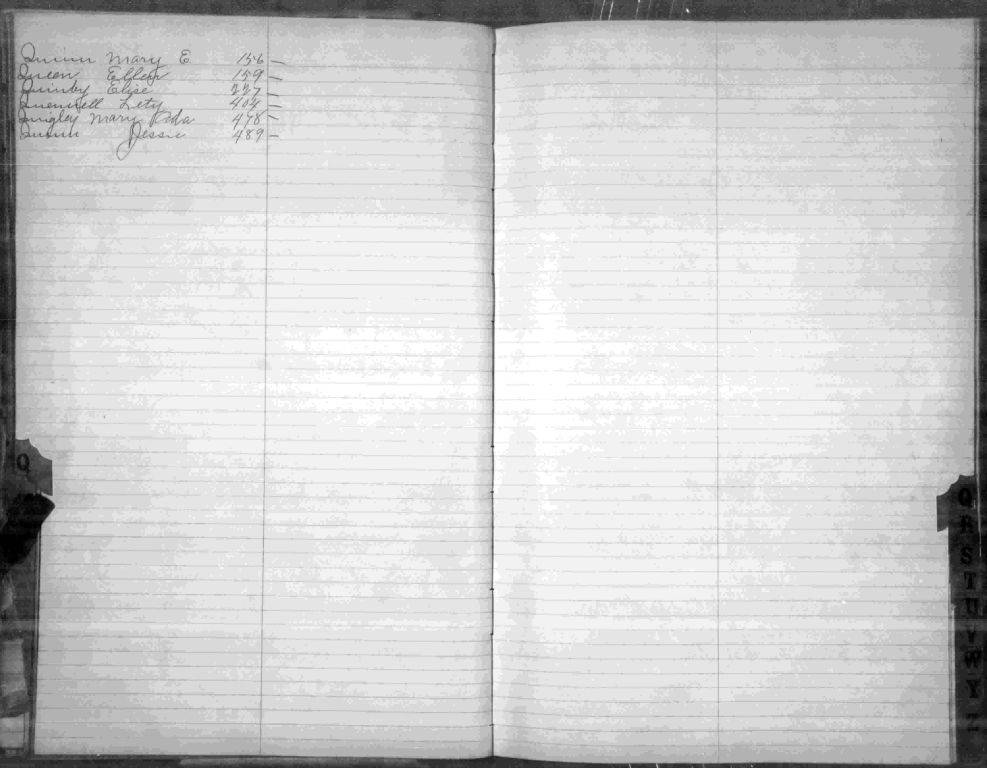 Quinn Mary E 156 —
Queen Ellen 159 —
Quinby Elise 227 —
Quennell Lety 404 —
Quigley Mary Ada 478 —
Quinn Jessie 489 —
Q
Q
R
S
T
U
V
W
Y
Z